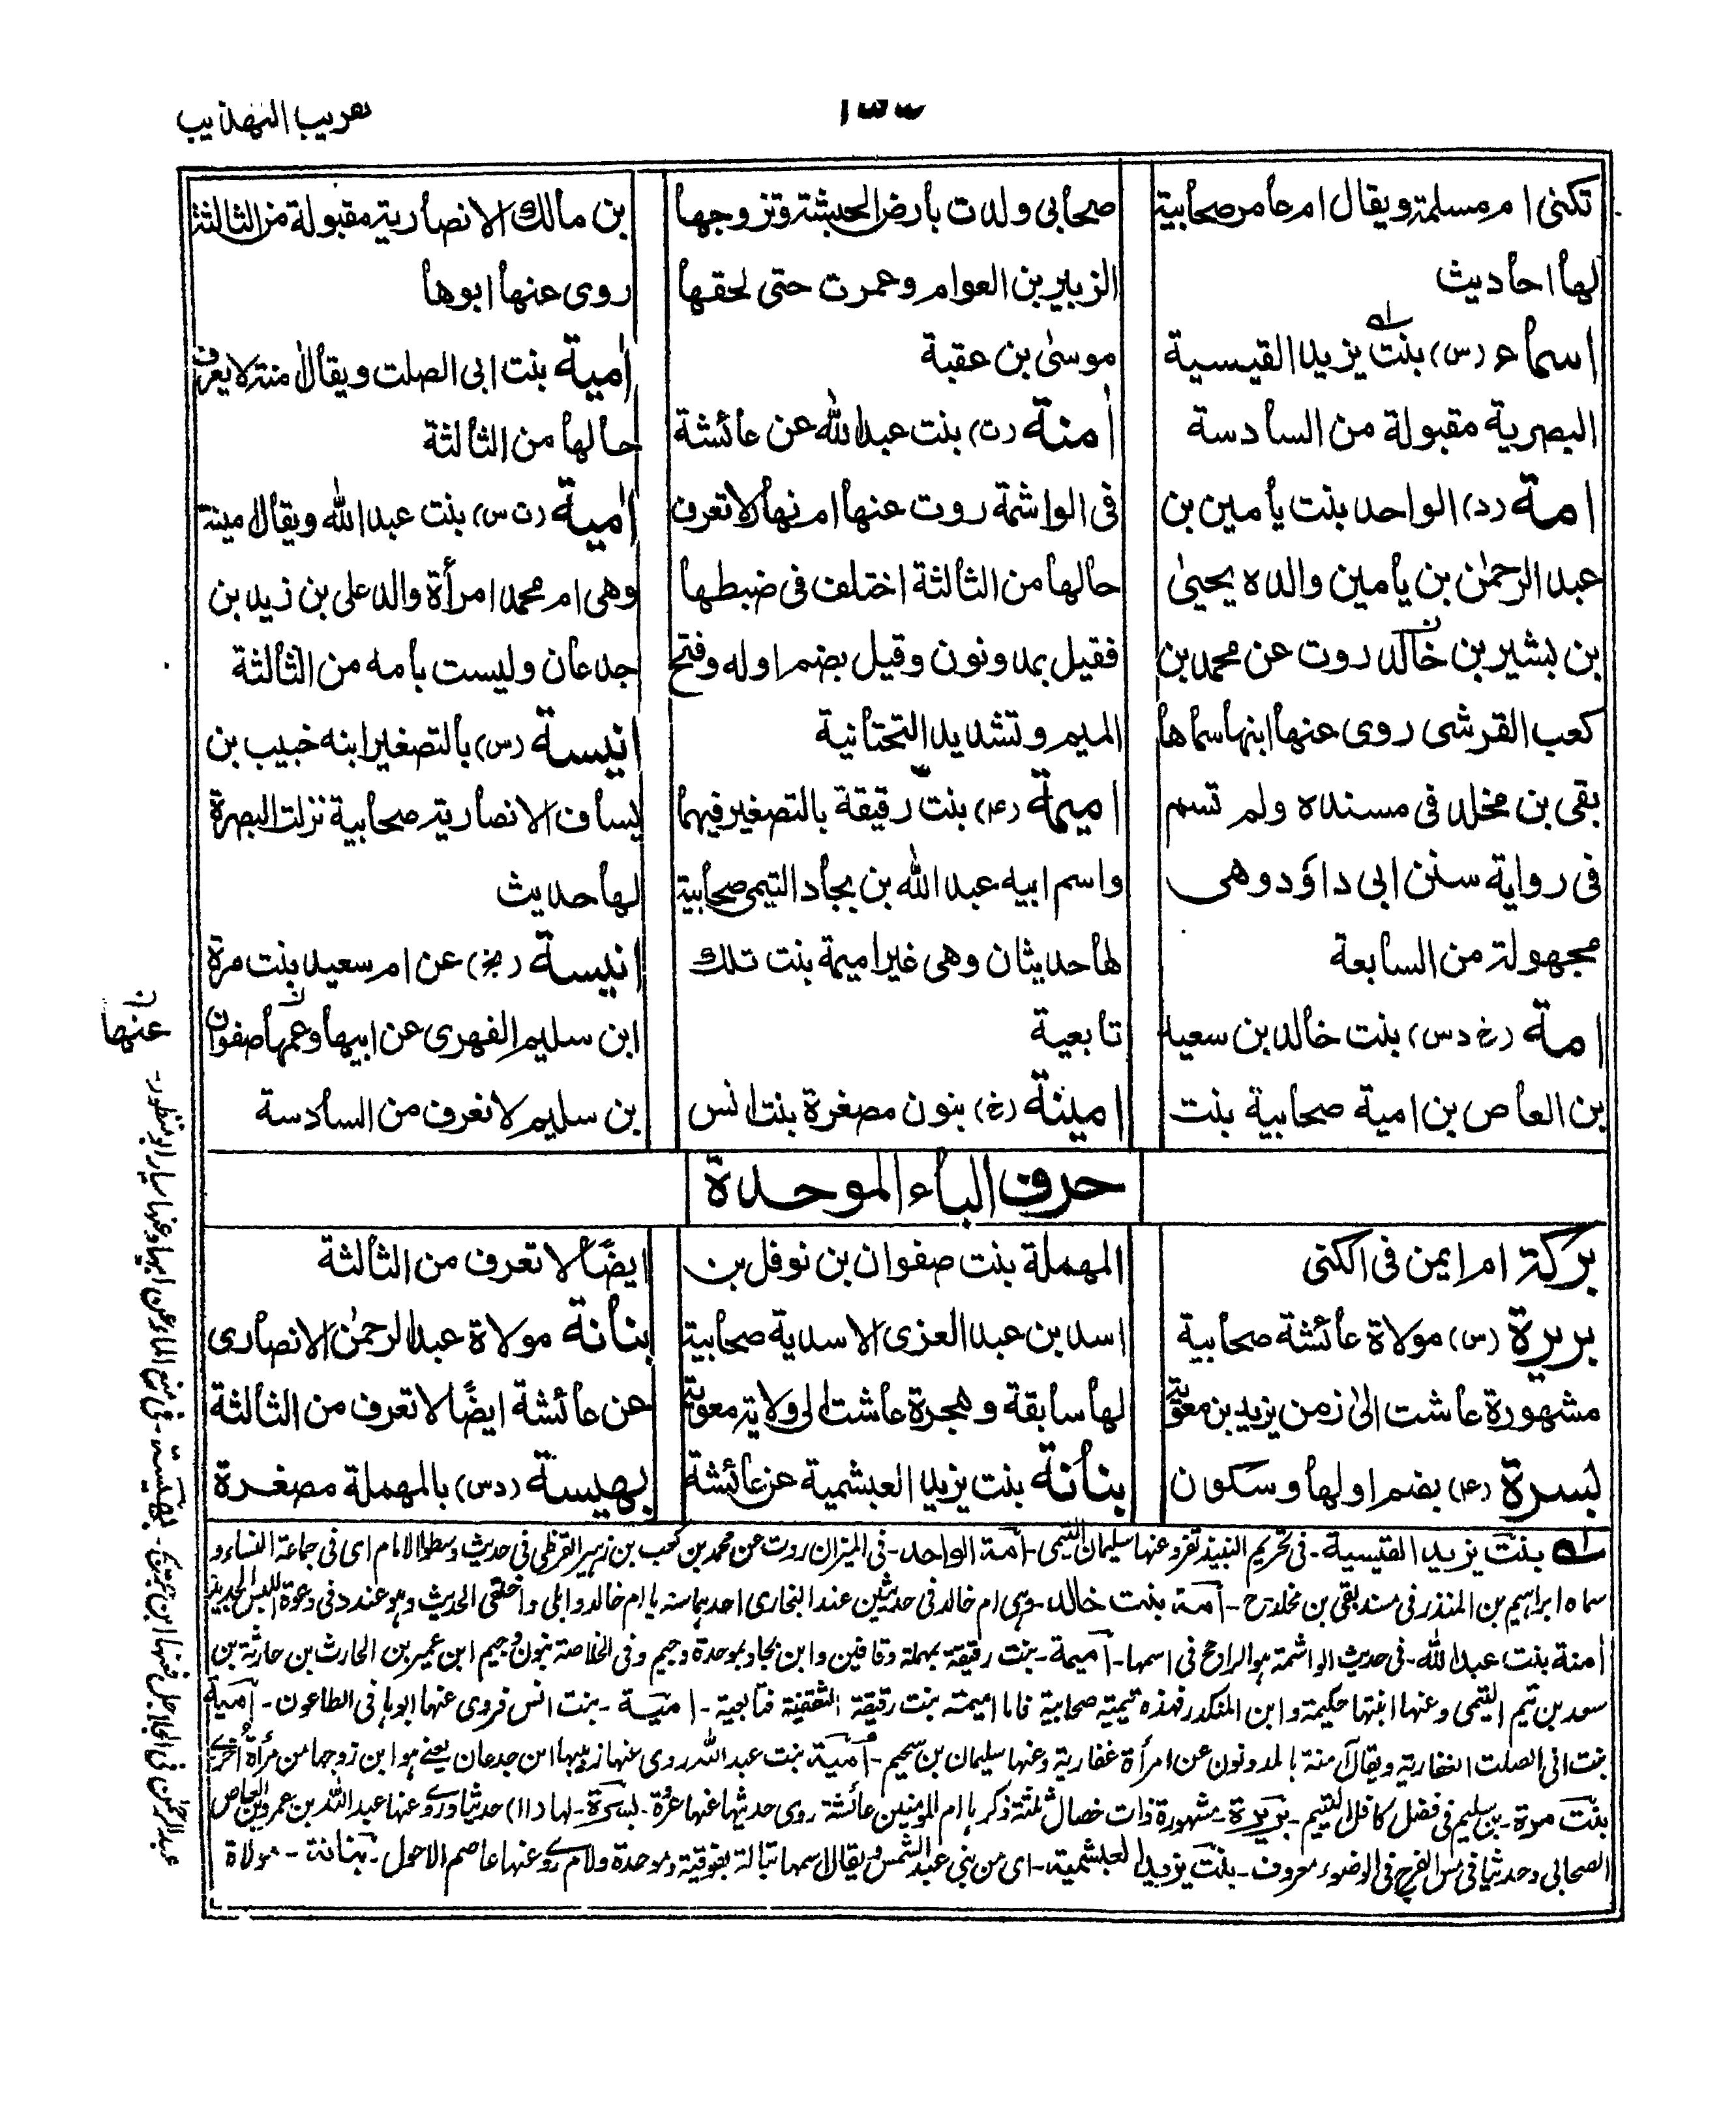 تقريب التهذيب
تكنى ام مسلمة ويقال ام عامر صحابية
لها احاديث
اسماء (س) بنت يزيد القيسية
البصرية مقبولة من السادسة
امة (د) الواحد بنت يامين بن
عبد الرحمٰن بن يامين والده يحيىٰ
بن بشير بن خالد روت عن محمد بن
كعب القرشى روى عنها ابنها سماها
بقى بن مخلد فى مسنده ولم تسم
فى رواية سنن ابى داؤد وهى
مجهولة من السابعة
امة (خ د س) بنت خالد بن سعيد
بن العاص بن امية صحابية بنت
صحابى ولدت بارض الحبشة وتزوجها
الزبير بن العوام وعمرت حتى لحقها
موسىٰ بن عقبة
اٰمنة (ت) بنت عبد الله عن عائشة
فى الواشمة روت عنها ام نهار لا تعرف
حالها من الثالثة اختلف فى ضبطها
فقيل بمد ونون وقيل بضم اوله وفتح
الميم وتشديد التحتانية
اميمة (٤) بنت رقيقة بالتصغير فيهما
واسم ابيه عبد الله بن بجاد التيمى صحابية
لها حديثان وهى غير اميمة بنت تلك
تابعية
امينة (خ) بنون مصغرة بنت انس
بن مالك الانصارية مقبولة من الثالثة
روى عنها ابوها
اُمية بنت ابى الصلت ويقال اٰمنة لا يعرف
حالها من الثالثة
اُمية (ت س) بنت عبد الله ويقال امينة
وهى ام محمد امرأة والد على بن زيد بن
جدعان وليست بامه من الثالثة
انيسة (س) بالتصغير ابنه خبيب بن
يساف الانصارية صحابية نزلت البصرة
لها حديث
انيسة (بخ) عن ام سعيد بنت مرة
ابن سليم الفهرى عن ابيها وعمها صفوان
بن سليم لا تعرف من السادسة
عنها
حرف الباء الموحدة
بركة ام ايمن فى الكنى
بريرة (س) مولاة عائشة صحابية
مشهورة عاشت الىٰ زمن يزيد بن معوية
بسرة (٤) بضم اولها وسكون
المهملة بنت صفوان بن نوفل بن
اسد بن عبد العزى الاسدية صحابية
لها سابقة وهجرة عاشت الى ولاية معوية
بنانة بنت يزيد العبشمية عن عائشة
ايضًا لا تعرف من الثالثة
بنانة مولاة عبد الرحمٰن الانصارى
عن عائشة ايضًا لا تعرف من الثالثة
بهيسة (د س) بالمهملة مصغرة
بنت يزيد القيسية۔ فى تحريم النبيذ تفرد عنها سليمان التيمى۔ امة الواحد۔ فى الميزان روت عن محمد بن كعب بن زهير القرظى فى حديث وسطوا الامام اى فى جماعة النساء و
سماه ابراهيم بن المنذر فى مسند بقى بن مخلد۔ امة بنت خالد۔ وهى ام خالد فى حديثين عند البخارى احدهما سنه يا ام خالد وابلى واخلقى الحديث وهو عند د فى دعوة اللبس الجديد
اٰمنة بنت عبد الله۔ فى حديث الواشمة هو الراجح فى اسمها۔ اميمة۔ بنت رقيقة بمهملة وقافين وابن بجاد بموحدة وجيم وفى الخلاصة بنون وجيم ابن عمير بن الحارث بن حارثة بن
سعد بن تيم التيمى وعنها ابنتها حكيمة وابن المنكدر فهذه تيمية صحابية فاما اميمة بنت رقيقة الثقفية فتابعية۔ امينة۔ بنت انس فروى عنها ابوها فى الطاعون۔ امية
بنت ابى الصلت الغفارية ويقال اٰمنة بالمد ونون عن امرأة غفارية وعنها سليمان بن سحيم۔ اُمية بنت عبد الله روى عنها ربيبها ابن جدعان يعنے هو ابن زوجها من مرأة اُخرى
بنت مرة۔ بن سليم فى فضل كافل اليتيم۔ بريرة۔ مشهورة ذات خصال ثلثة ذكرها ام المؤمنين عائشة روى حديثها عنها عروة۔ بسرة۔ لها (١١) حديثا روے عنها عبد الله بن عمرو بن العاص
الصحابى وحديثها فى مس الفرج فى الوضوء معروف۔ بنت يزيد العبشمية۔ اى من بنى عبد الشمس ويقال اسمها تبالة بفوقية وموحدة ولام روے عنها عاصم الاحول۔ بنانة۔ مولاة